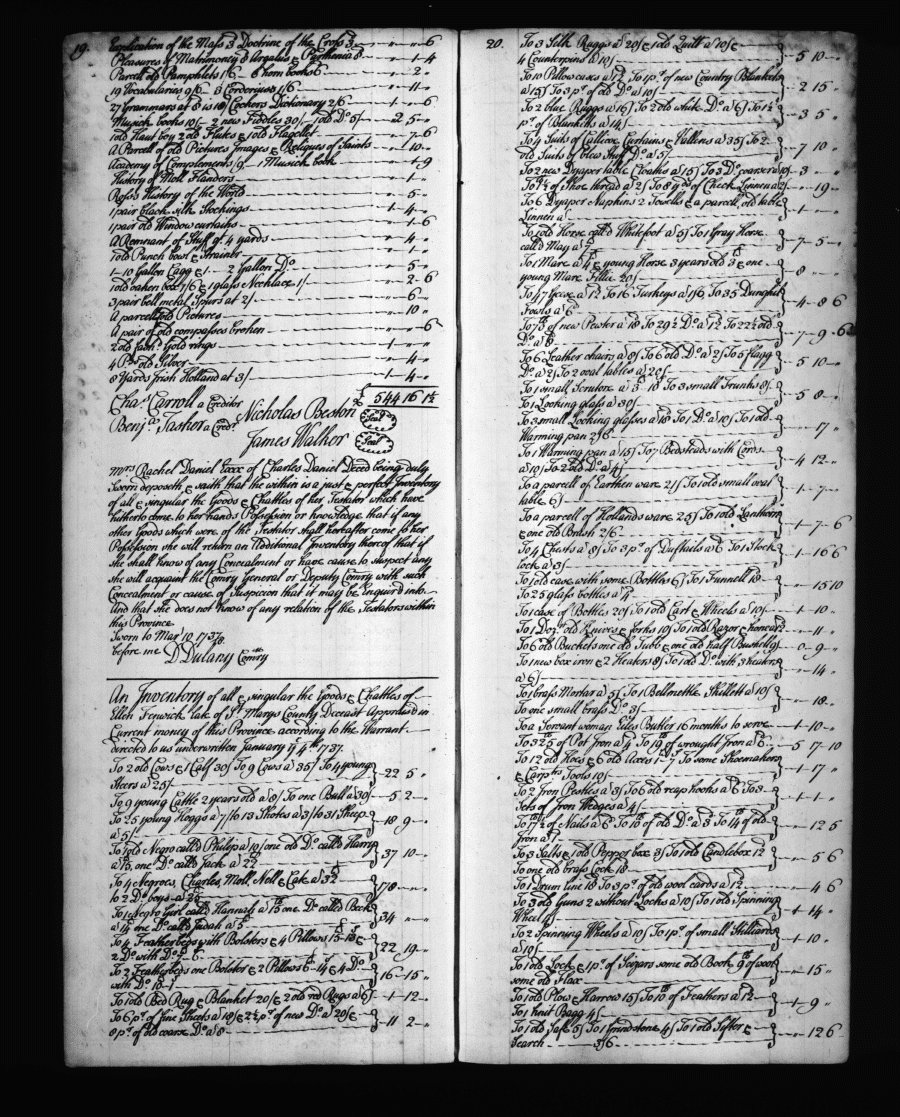 19.
Explication of the Mass 3 Doctrine of the Cross 3 — " — " — 6
Pleasures of Matrimony 8 Argalus & Parthenia 8 — " — 1 — 4
Parcell old Pamphlets 1/6 — 8 horn books 6 — " — 2 — "
19 Vocabularies 9/6 — 3 Corderius 1/6 — " — 11 — "
27 Grammars at 8 is 18/ Cockers Dictionary 2/6 — 1 — " — 6
Musick books 10/ — 2 new Fiddles 30/ — 1 old Do 5/ — 2 5 — "
1 old Haut boy 2 old Flutes & 1 old Flagellet — " — 7 — 6
A Parcell of old Pictures Images & Reliques of Saints — " — 10 — "
Academy of Complements /9 — 1 Musick book — " — 1 — 9
History of Moll Flanders — " — 1 — "
Ross's History of the World — " — 5 — "
1 pair black silk Stockings — " — 4 — "
1 pair old Window curtains — " — 1 — 6
A Remnant of Stuff qt 4 yards — " — 4 — "
1 old Punch bowl & Strainer
1 — 10 Gallon Cagg & 1 — 2 Gallon Do — " — 5 — "
1 old oaken box 1/6 & 1 glass Necklace 1/ — " — 2 — 6
3 pair bell metal Spurs at 2/ — " — 6 — "
A parcell old Pictures — " — 10 — "
A pair of old compasses broken — " — " — 6
2 old fashd Gold rings — " — 1 — " — "
4 Pcs old Silver — " — 4 — "
8 Yards Irish Holland at 3/ — " — 1 — 4 — "
£ 544 16 1½
Chas Carroll a Creditor Nicholas Beston Seal
Benja Tasker a Credr
James Walker Seal
Mrs Rachel Daniel Exx of Charles Daniel Deced being duly
Sworn deposeth & saith that the within is a just & perfect Inventory
of all & singular the Goods & Chattles of her Testator which have
hitherto come to her hands Possession or knowledge that if any
other Goods which were of the Testator shall hereafter come to her
Possession she will return an Additional Inventory thereof that if
she shall know of any Concealment or have cause to suspect any
she will acquaint the Comry General or Deputy Comry with such
Concealment or cause of Suspicion that it may be inquird into
And that she does not know of any relation of the Testators within
this Province
Sworn to Mar 10 1737/8
before me D Dulany Comry
An Inventory of all & singular the Goods & Chattles of
Ellen Fenwick late of St Marys County Deceast Appraised in
Current money of this Province according to the Warrant
directed to us underwritten January ye 4th 1737.
To 2 old Cows & 1 Calf 30/ To 9 Cows a 35/ To 4 young
steers a 25/ — 22 5 "
To 9 young Cattle 2 years old a 8/ To one Bull a 30/ — 5 2 —
To 25 young Hoggs a 7/ to 13 Shotes a 3/ to 31 Sheep
a 5/ — 18 9 — "
To 1 old Negro calld Philip a 10/ one old Do calld Harry
a 15 one Do calld Jack a 22 — 37 10 — "
To 4 Negroes, Charles, Moll, Nell & Cate a 32
to 2 Do boys a 25 — 178 — " — "
To 1 Negro Girl calld Hannah a 15 one Do calld Beck
a 14 one Do calld Judah a 5 — 34 " — "
To 4 Featherbeds with Bolsters & 4 Pillows
2 Do with Do — 22 19 — "
To 2 Featherbeds one Bolster & 2 Pillows
with Do — 16 — 15 "
To 1 old Bed Rug & Blanket 20/ & 2 old red Rugs a 6/ — 1 — 12 —
To 6 pr of fine Sheets a 18/ & 2½ pr of new Do a 20/ &
8 pr of old coarse Do a 8 — 11 2 — "
20.
To 3 Silk Ruggs a 20/ & 1 old Quilt a 10/ &
4 Counterpins a 10/ — 5 10 —
To 10 Pillow cases a 12 To 1 pr of new Country Blankets
a 15/ To 3 pr of old Do a 10/ — 2 15 "
To 2 blue Ruggs a 16/ To 2 old white Do a 6/ To 1½
pr of Blankitts a 14/ — 3 5 "
To 4 Suits of Callicoe Curtains & Vallens a 35/ To 2
old Suits of blew Stuff Do a 5/ — 7 10 "
To 2 new Dyaper table Cloaths a 15/ To 3 Do coarser 10/ — 3 — "
To 1½ of Shoe thread a 2/ To 8 yds of Check Linnen a 2/ — " — 19 — "
To 6 Dyaper Napkins 2 Towells & a parcell old table
Linnen a — 1 — " — "
To 1 old Horse calld Whitefoot a 5/ To 1 Gray Horse
calld May a 7 — 7 — 5 — "
To 1 Mare a 4 & young Horse 3 years old 3 & one
young Mare Fillie 20/ — 8 — "
To 47 Geese a 12 To 16 Turkeys a 1/6 To 35 Dunghil
Fowls a 6 — 4 — 8 6
To 73 of new Pewter a 18 To 29½ Do a 12 To 22½ old
Do a 8 — 7 — 9 — 6
To 6 Leather chairs a 8/ To 6 old Do a 2/ To 5 flagg
Do a 2/ To 2 oval tables a 20/ — 5 10 —
To 1 small Scrutore a 3 18 To 3 small Trunks 8/
To 1 Looking glass a 30/ — 5 8 — "
To 3 small Looking glasses a 18 To 1 Do a 10/ To 1 old
Warming pan 2/6 — " 17 "
To 1 Warming pan a 15/ To 7 Bedsteads with Cords
a 10/ To 2 old Do a 4/ — 4 12 — "
To a parcell of Earthen ware 21/ To 1 old small oval
table 6/ — 1 — 7 — "
To a parcell of Hollands ware 25/ To 1 old Lanthorn
& one old Brush 2/6 — 1 — 7 — 6
To 4 Chests a 8/ To 3 pr of Dufftails a 6 To 1 Stock
lock a 3/ — 1 — 16 6
To 1 old case with some Bottles 6/ To 1 Funnell 18
To 25 glass bottles a 4 — 15 10
To 1 case of Bottles 20/ To 1 old Cart & Wheels a 10/ — 1 — 10 — "
To 1 Doz old Knives & forks 10/ To 1 old Razor & hone — " — 11 — "
To 6 old Buckets one old Tubb & one old half Bushell 9/ — 0 — 9 — "
To 1 new box iron & 2 Heaters 8/ To 1 old Do with 3 heaters
a 6/ — " — 14 — "
To 1 brass Mortar a 5/ To 1 Bellmettle Skillett a 10/
To one small brass Do 3/ — " 18 "
To a Servant woman Elles Butler 16 months to serve — 1 — 10 — "
To 325 of Pot Iron a 4 To 19 of wrought Iron a 6 — 5 — 7 — 10
To 12 old Hoes & 6 old Axes 1 — 7 To some Shoemakers
& Carptrs Tools 10/ — 1 — 17 "
To 2 Iron Pestles a 3/ To 6 old reap hooks a 6 To 3
Sets of Iron Wedges a 4/ — 1 — 1 — "
To 17½ of Nails a 6 To 10 of old Do a 3 To 14 of old
Iron a 1 — " 12 5
To 3 Salts & 1 old Pepper box 3/ To 1 old Candlebox 12
To one old brass Cock 18 — " 5 6
To 1 Drum line 18 To 3 pr of old wool cards a 12 — " 4 6
To 3 old Guns 2 without Locks a 10/ To 1 old Spinning
Wheel 4/ — 1 — 14 — "
To 2 Spinning Wheels a 10/ To 1 pr of small Stilliards
a 10/ — 1 — 10 "
To 1 old Lock & 1 pr of Scizars some old Book 9 of wool
some old Flax — " 15 — "
To 1 old Plow & Harrow 15/ To 10 of Feathers a 12
To 1 Knit Bagg 4/ — 1 — 9 — "
To 1 old Safe 5/ To 1 grindstone 4/ To 1 old Sifter &
Search 3/6 — " — 12 6